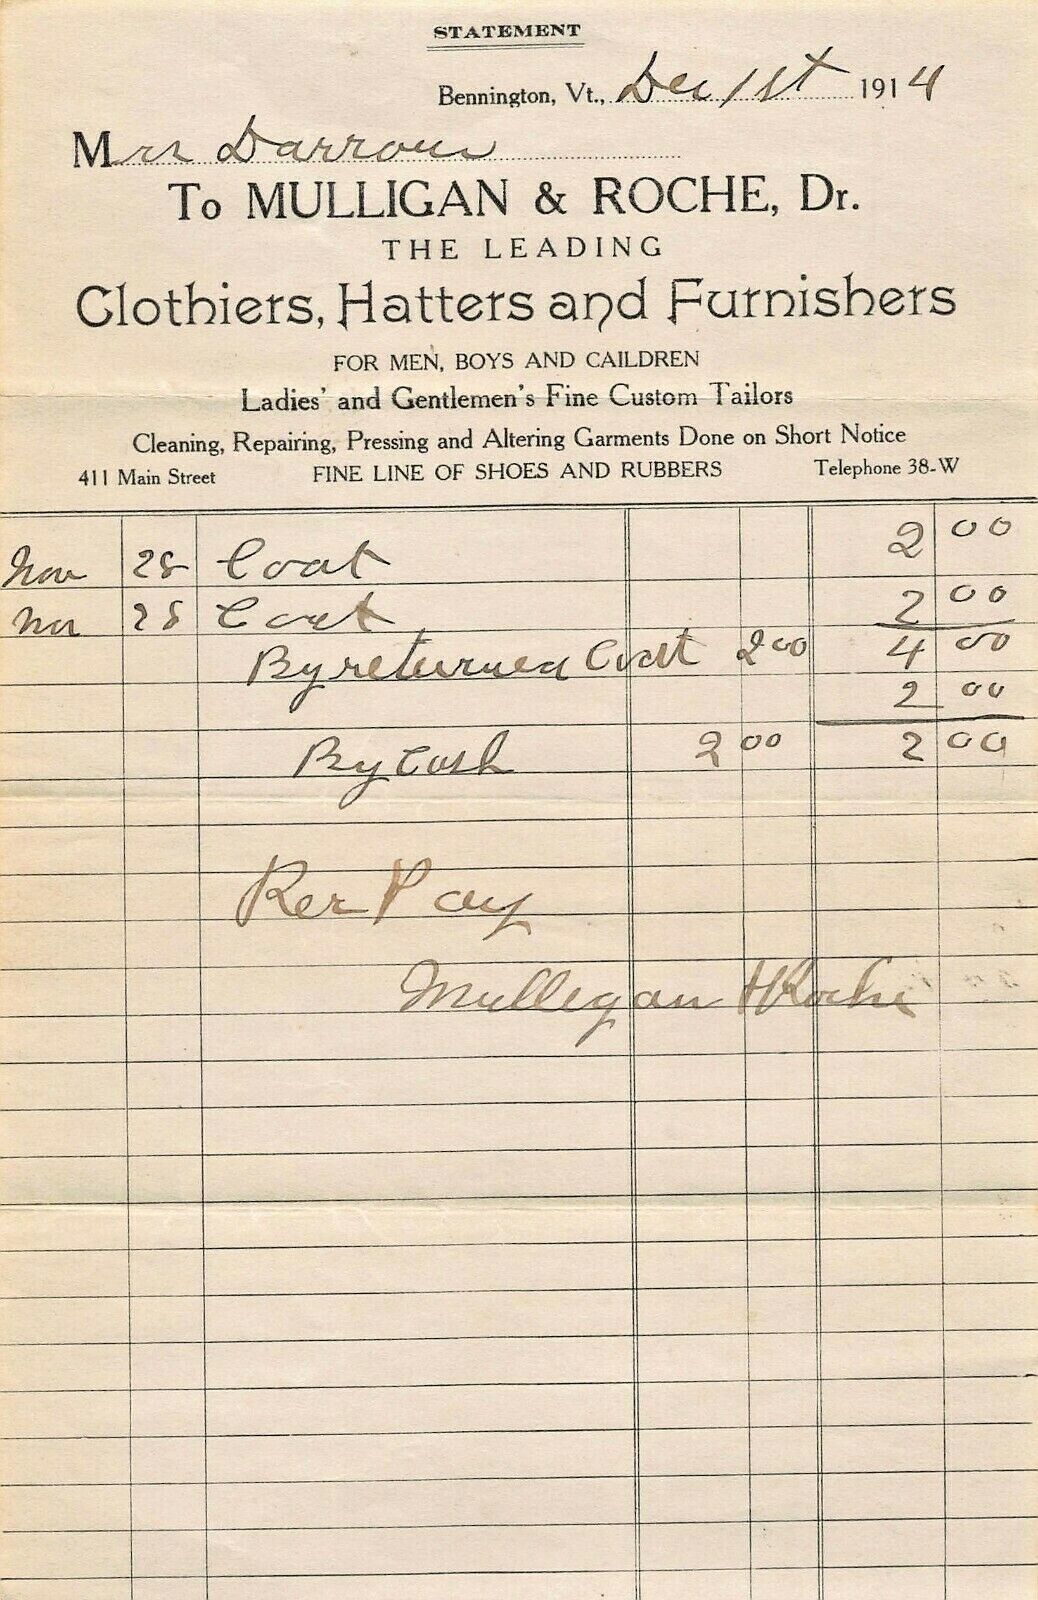 STATEMENT
Bennington, Vt., Dec 1st 1914
Mrs Darrow
To MULLIGAN & ROCHE, Dr.
THE LEADING
Clothiers, Hatters and Furnishers
FOR MEN, BOYS AND CAILDREN
Ladies' and Gentlemen's Fine Custom Tailors
Cleaning, Repairing, Pressing and Altering Garments Done on Short Notice
411 Main Street FINE LINE OF SHOES AND RUBBERS Telephone 38-W
Nov 28 Coat 2 00
Nov 28 Coat 2 00
By returned Coat 2 00 4 00
2 00
By Cash 2 00 2 00
Rec Pay
Mulligan & Roche